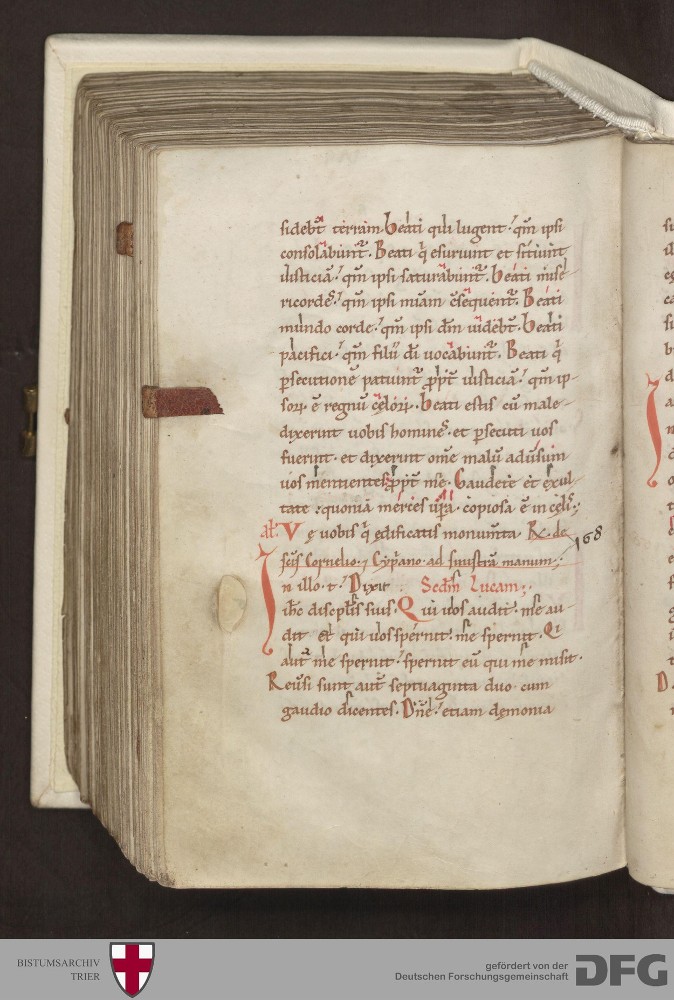 sidebt̄ terram. Beati qui lugent. qm̄ ipsi
consolabunt̄. Beati q̄ esuriunt et sitiunt
iusticiā. qm̄ ipsi saturabunt̄. Beati mise
ricordes. qm̄ ipsi miām c̄sequent̄. Beati
mundo corde. qm̄ ipsi dm̄ uidebt̄. Beati
pacifici. qm̄ filii dī uocabunt̄. Beati q̄
ꝑsecutionē patiunt̄ ꝓpt̄ iusticiā. qm̄ ip
soꝝ ē regnū cęloꝝ. Beati estis cū male
dixerint uobis homines. et ꝑsecuti uos
fuerint. et dixerint ome malū adūsum
uos mentientes ꝓpt̄ me. Gaudete et exul
tate quoniā merces ur̄a copiosa ē in cęlis.
Al. Vę uobis q̄ edificatis monum̄ta R. de
sc̄is Cornelio. ⁊ Cyp̄ano. ad sinistrā manum. 168
In illo. t. Dixit Sedm̄ Lucam.
ihc̄ disciplis suis. Qui uos audit. me au
dit et qui uos spernit. me spernit. Qi
aut me spernit. spernit eū qui me misit.
Reūsi sunt aut̄ septuaginta duo cum
gaudio dicentes. Dn̄e. etiam dęmonia
BISTUMSARCHIV
TRIER
gefördert von der
Deutschen Forschungsgemeinschaft
DFG